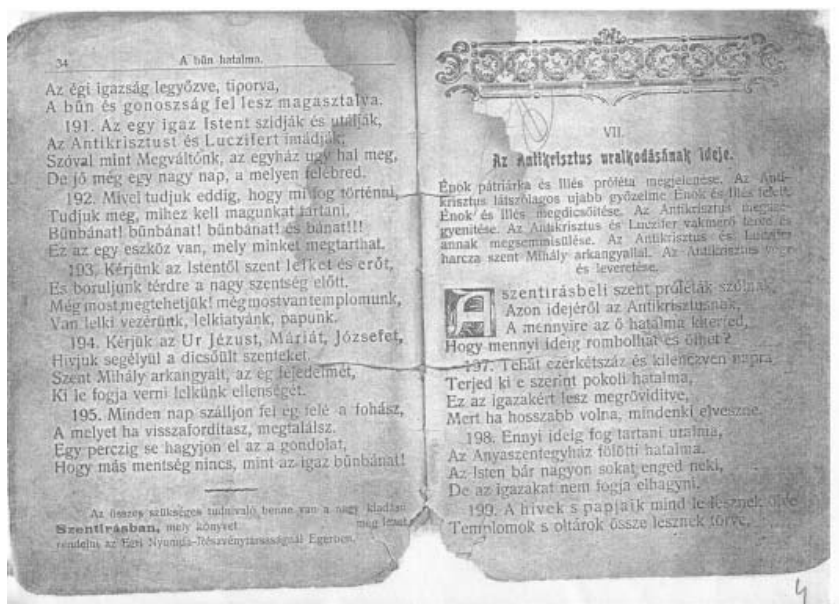 34 A bűn hatalma.
Az égi igazság legyőzve, tiporva,
A bűn és gonoszság fel lesz magasztalva.
191. Az egy igaz Istent szidják és utálják,
Az Antikrisztust és Luczifert imádják,
Szóval mint Megváltónk, az egyház ugy hal meg,
De jő még egy nagy nap, a melyen felébred.
192. Mivel tudjuk eddig, hogy mi fog történni,
Tudjuk meg, mihez kell magunkat tartani,
Bűnbánat! bűnbánat! bűnbánat! és bánat!!!
Ez az egy eszköz van, mely minket megtarthat.
193. Kérjünk az Istentől szent lelket és erőt,
És boruljunk térdre a nagy szentség előtt.
Még most megtehetjük! még most van templomunk,
Van lelki vezérünk, lelkiatyánk, papunk.
194. Kérjük az Ur Jézust, Máriát, Józsefet,
Hivjuk segélyül a dicsőült szenteket.
Szent Mihály arkangyalt, az ég fejedelmét,
Ki le fogja verni lelkünk ellenségét.
195. Minden nap szálljon fel ég felé a fohász,
A melyet ha visszaforditasz, megtalálsz.
Egy perczig se hagyjon el az a gondolat,
Hogy más mentség nincs, mint az igaz bűnbánat!
Az összes szükséges tudnivaló benne van a nagy kiadásu
Szentirásban, mely könyvet meg lehet
rendelni az Egri Nyomda-Részvénytársaságnál Egerben.
VII.
Az Antikrisztus uralkodásának ideje.
Énok pátriárka és Illés próféta megjelenése. Az Anti-
krisztus látszólagos ujabb győzelme Énok és Illés felett.
Énok és Illés megdicsőitése. Az Antikrisztus megszé-
gyenitése. Az Antikrisztus és Luczifer vakmerő terve és
annak megsemmisülése. Az Antikrisztus és Luczifer
harcza szent Mihály arkangyallal. Az Antikrisztus vége
és leveretése.
A szentirásbeli szent próféták szólnak,
Azon idejéről az Antikrisztusnak,
A mennyire az ő hatalma kiterjed,
Hogy mennyi ideig rombolhat és ölhet?
197. Tehát ezerkétszáz és kilenczven napra
Terjed ki e szerint pokoli hatalma,
Ez az igazakért lesz megröviditve,
Mert ha hosszabb volna, mindenki elveszne.
198. Ennyi ideig fog tartani uralma,
Az Anyaszentegyház fölötti hatalma.
Az Isten bár nagyon sokat enged neki,
De az igazakat nem fogja elhagyni.
199. A hivek s papjaik mind le lesznek ölve
Templomok s oltárok össze lesznek törve,
4